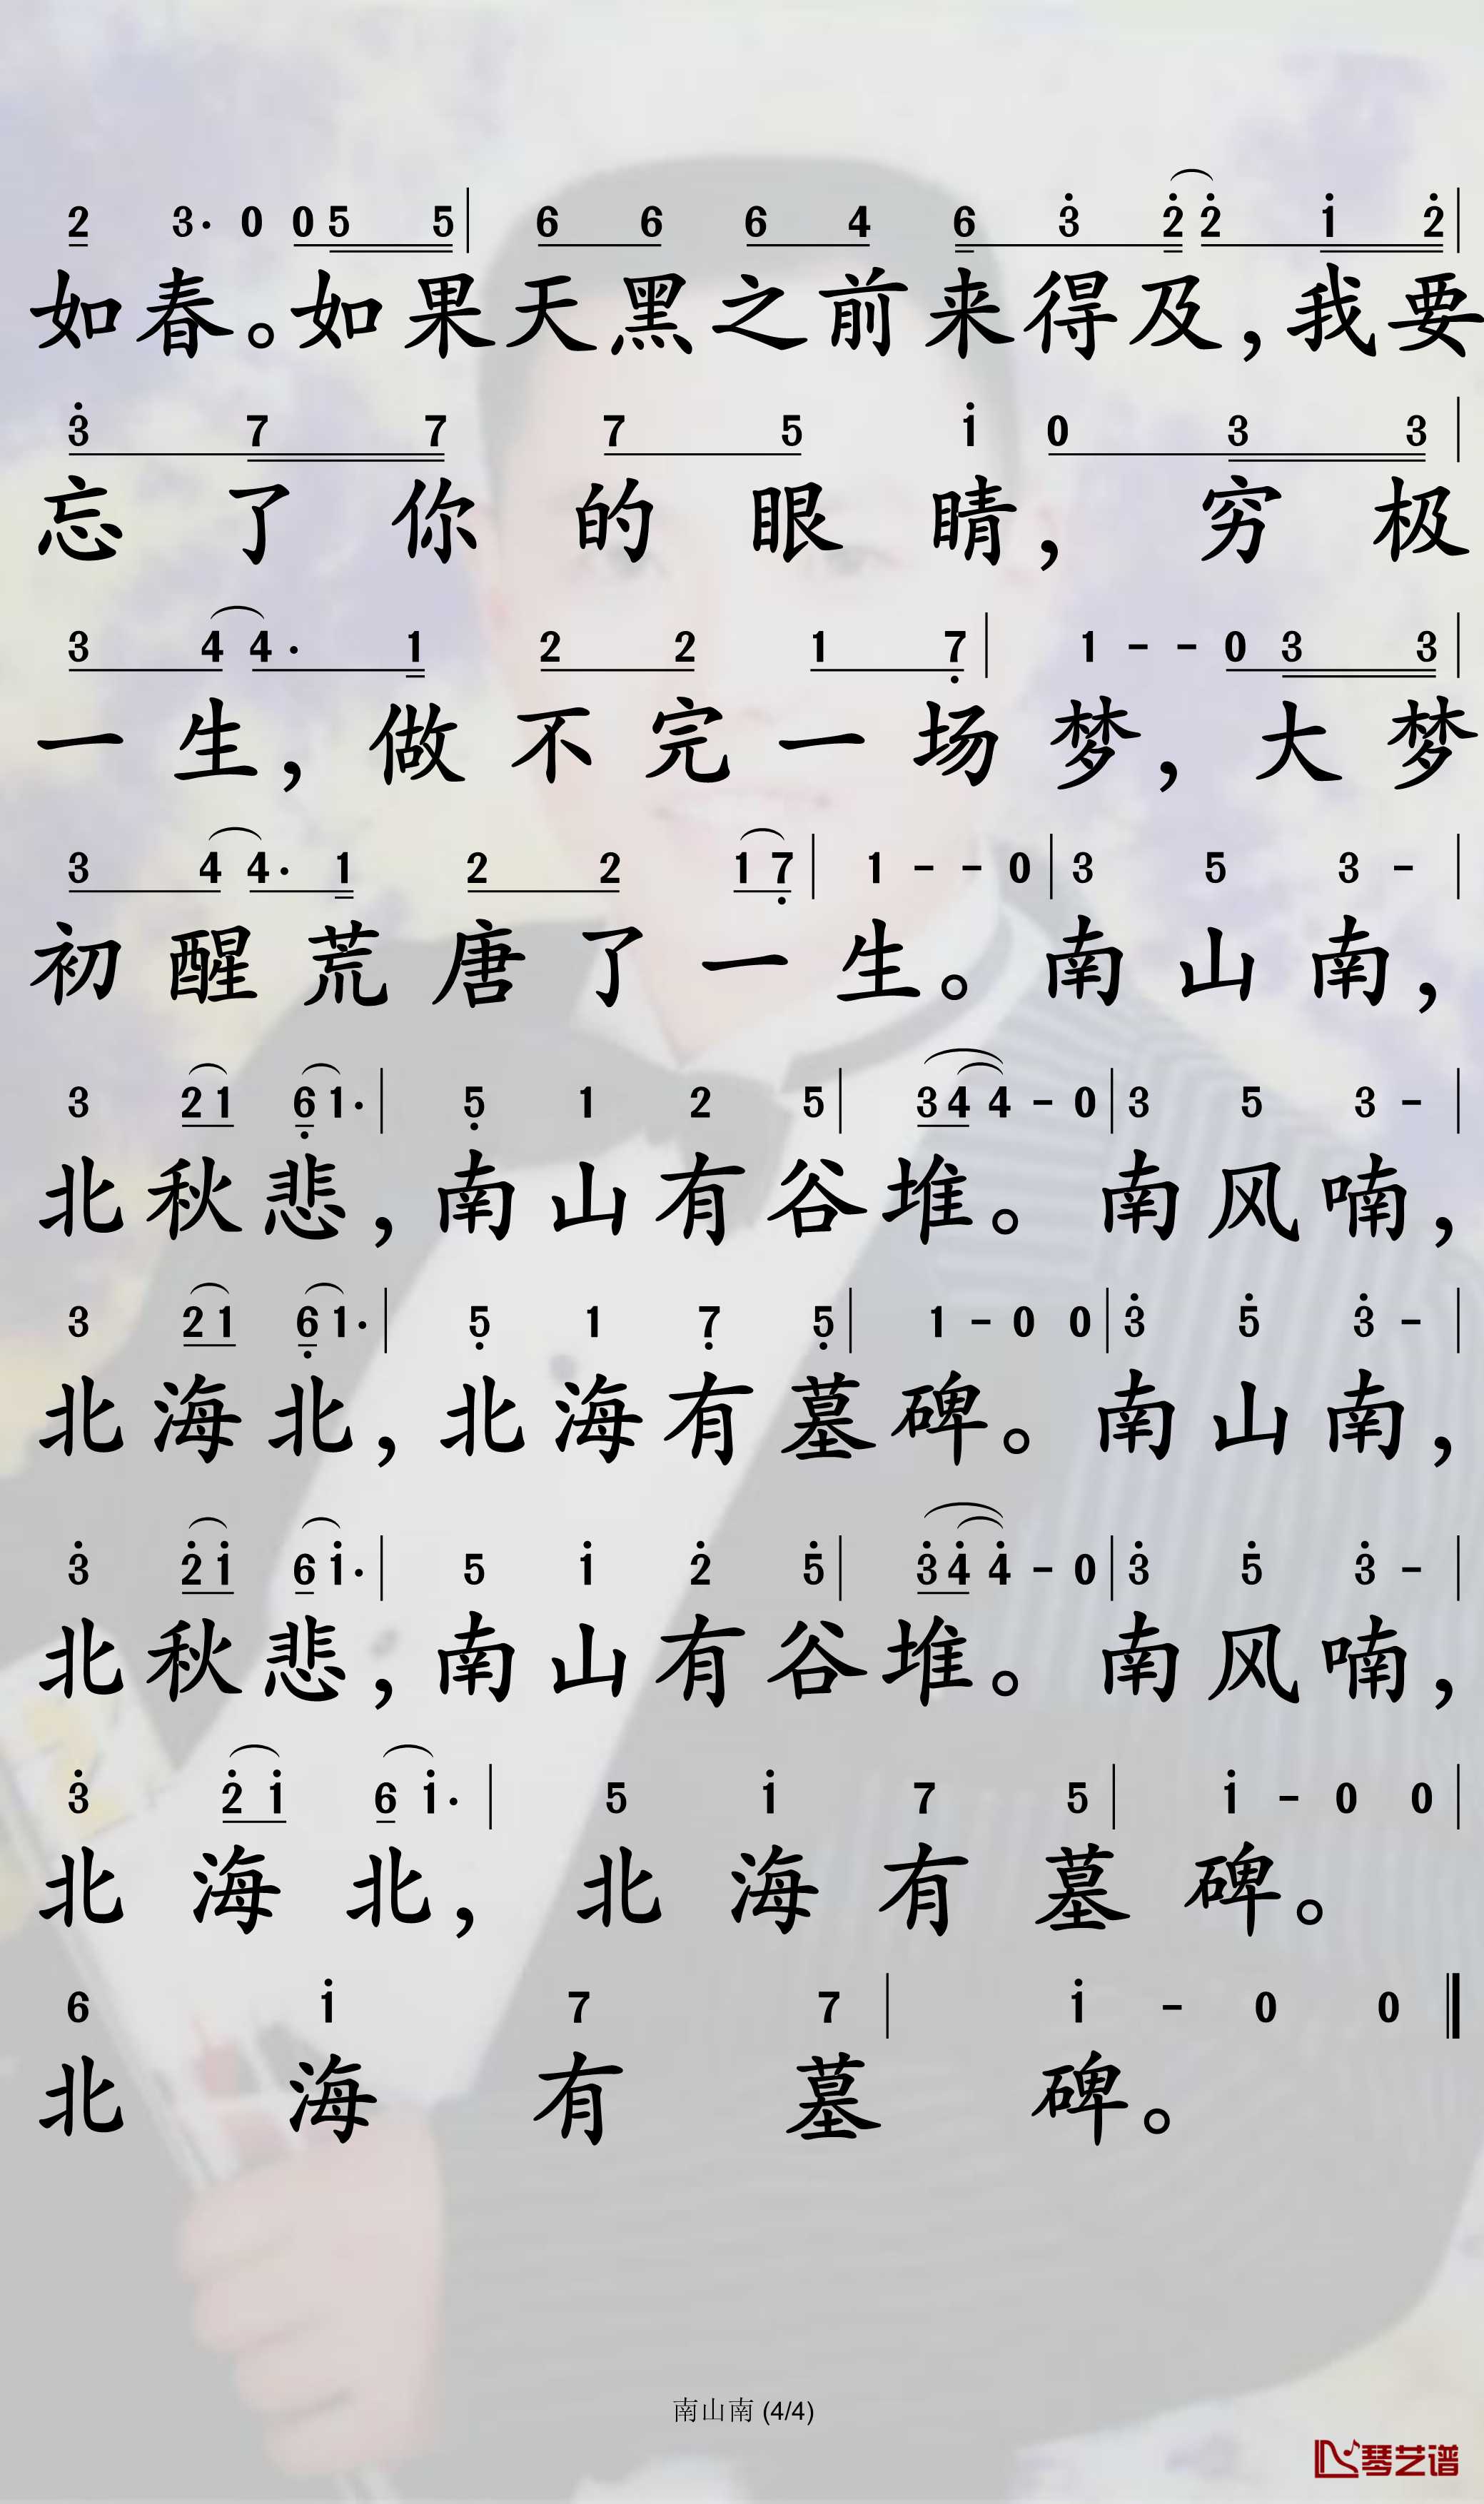 2 3. 0 0 5 5 | 6 6 6 4 6 3̇ 2̇ 2̇ 1̇ 2̇ |
如春。如果天黑之前来得及,我要
3̇ 7 7 7 5 1̇ 0 3 3 |
忘了你的眼睛,穷极
3 4 4. 1 2 2 1 7̣ | 1 - - 0 3 3 |
一生,做不完一场梦,大梦
3 4 4. 1 2 2 1 7̣ | 1 - - 0 | 3 5 3 - |
初醒荒唐了一生。南山南,
3 2 1 6̣ 1. | 5̣ 1 2 5 | 3 4 4 - 0 | 3 5 3 - |
北秋悲,南山有谷堆。南风喃,
3 2 1 6̣ 1. | 5̣ 1 7̣ 5̣ | 1 - 0 0 | 3̇ 5̇ 3̇ - |
北海北,北海有墓碑。南山南,
3̇ 2̇ 1̇ 6 1̇. | 5 1̇ 2̇ 5̇ | 3̇ 4̇ 4̇ - 0 | 3̇ 5̇ 3̇ - |
北秋悲,南山有谷堆。南风喃,
3̇ 2̇ 1̇ 6 1̇. | 5 1̇ 7 5 | 1̇ - 0 0 |
北海北,北海有墓碑。
6 1̇ 7 7 | 1̇ - 0 0 ‖
北海有墓碑。
南山南 (4/4)
琴艺谱